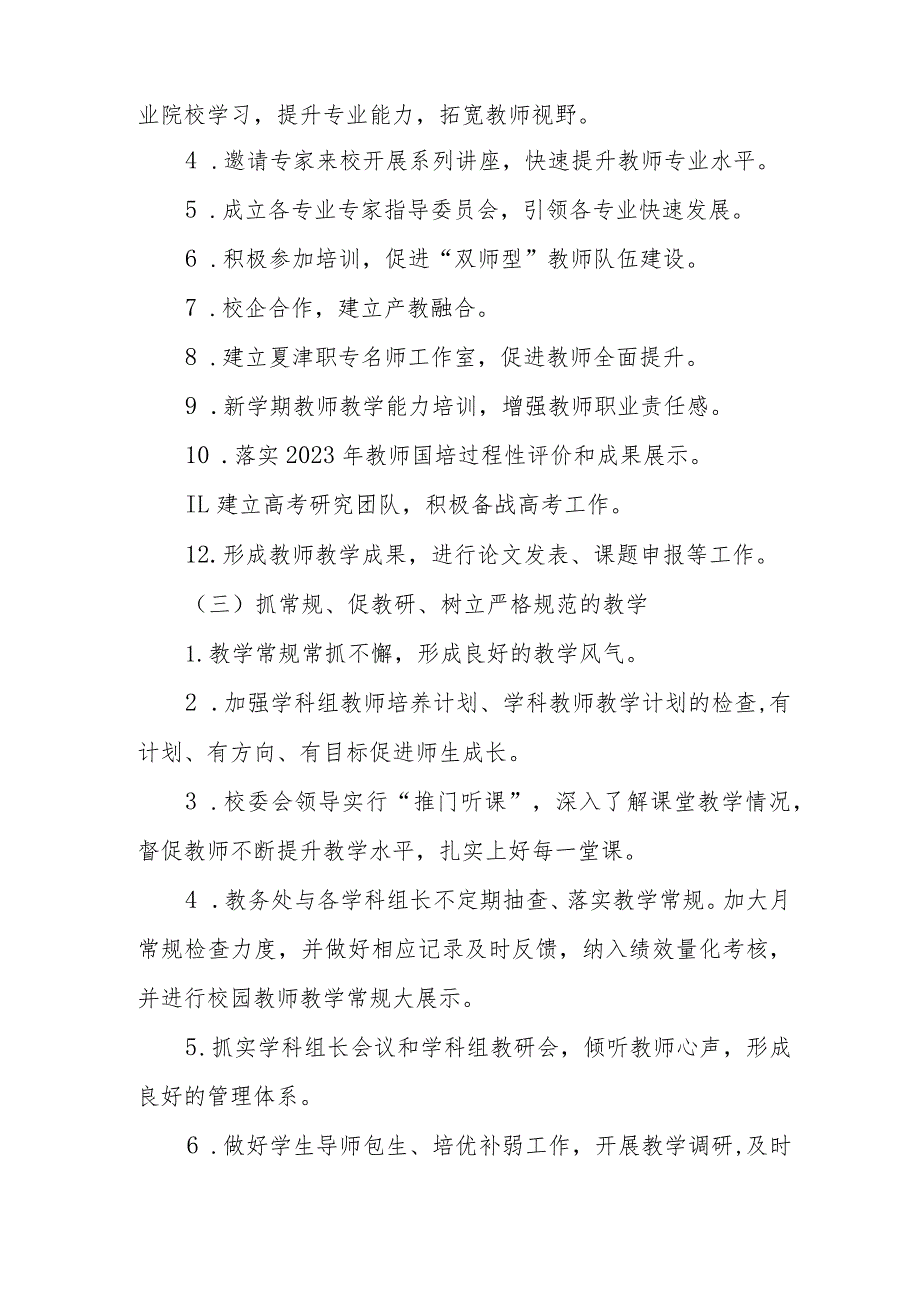 业院校学习，提升专业能力，拓宽教师视野。
4 .邀请专家来校开展系列讲座，快速提升教师专业水平。
5 .成立各专业专家指导委员会，引领各专业快速发展。
6 .积极参加培训，促进“双师型”教师队伍建设。
7 .校企合作，建立产教融合。
8 .建立夏津职专名师工作室，促进教师全面提升。
9 .新学期教师教学能力培训，增强教师职业责任感。
10 .落实 2023 年教师国培过程性评价和成果展示。
IL 建立高考研究团队，积极备战高考工作。
12.形成教师教学成果，进行论文发表、课题申报等工作。
（三）抓常规、促教研、树立严格规范的教学
1.教学常规常抓不懈，形成良好的教学风气。
2 .加强学科组教师培养计划、学科教师教学计划的检查,有
计划、有方向、有目标促进师生成长。
3 .校委会领导实行“推门听课”，深入了解课堂教学情况，
督促教师不断提升教学水平，扎实上好每一堂课。
4 .教务处与各学科组长不定期抽查、落实教学常规。加大月
常规检查力度，并做好相应记录及时反馈，纳入绩效量化考核，
并进行校园教师教学常规大展示。
5.抓实学科组长会议和学科组教研会，倾听教师心声，形成
良好的管理体系。
6 .做好学生导师包生、培优补弱工作，开展教学调研,及时